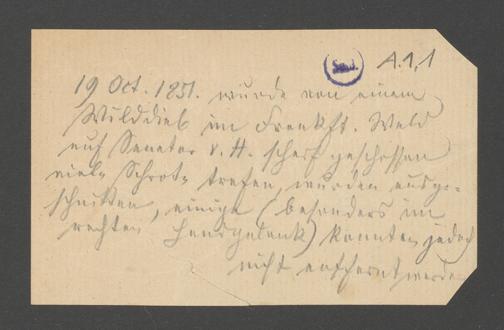 A.1,1
19 Oct. 1851. wurde von einem
Wilddieb im Frankft. Wald
auf Senator v. H. scharf geschossen
viele Schrote trafen, wurden ausge-
schnitten, einige (besonders im
rechten Handgelenk) konnten jedoch
nicht entfernt werden